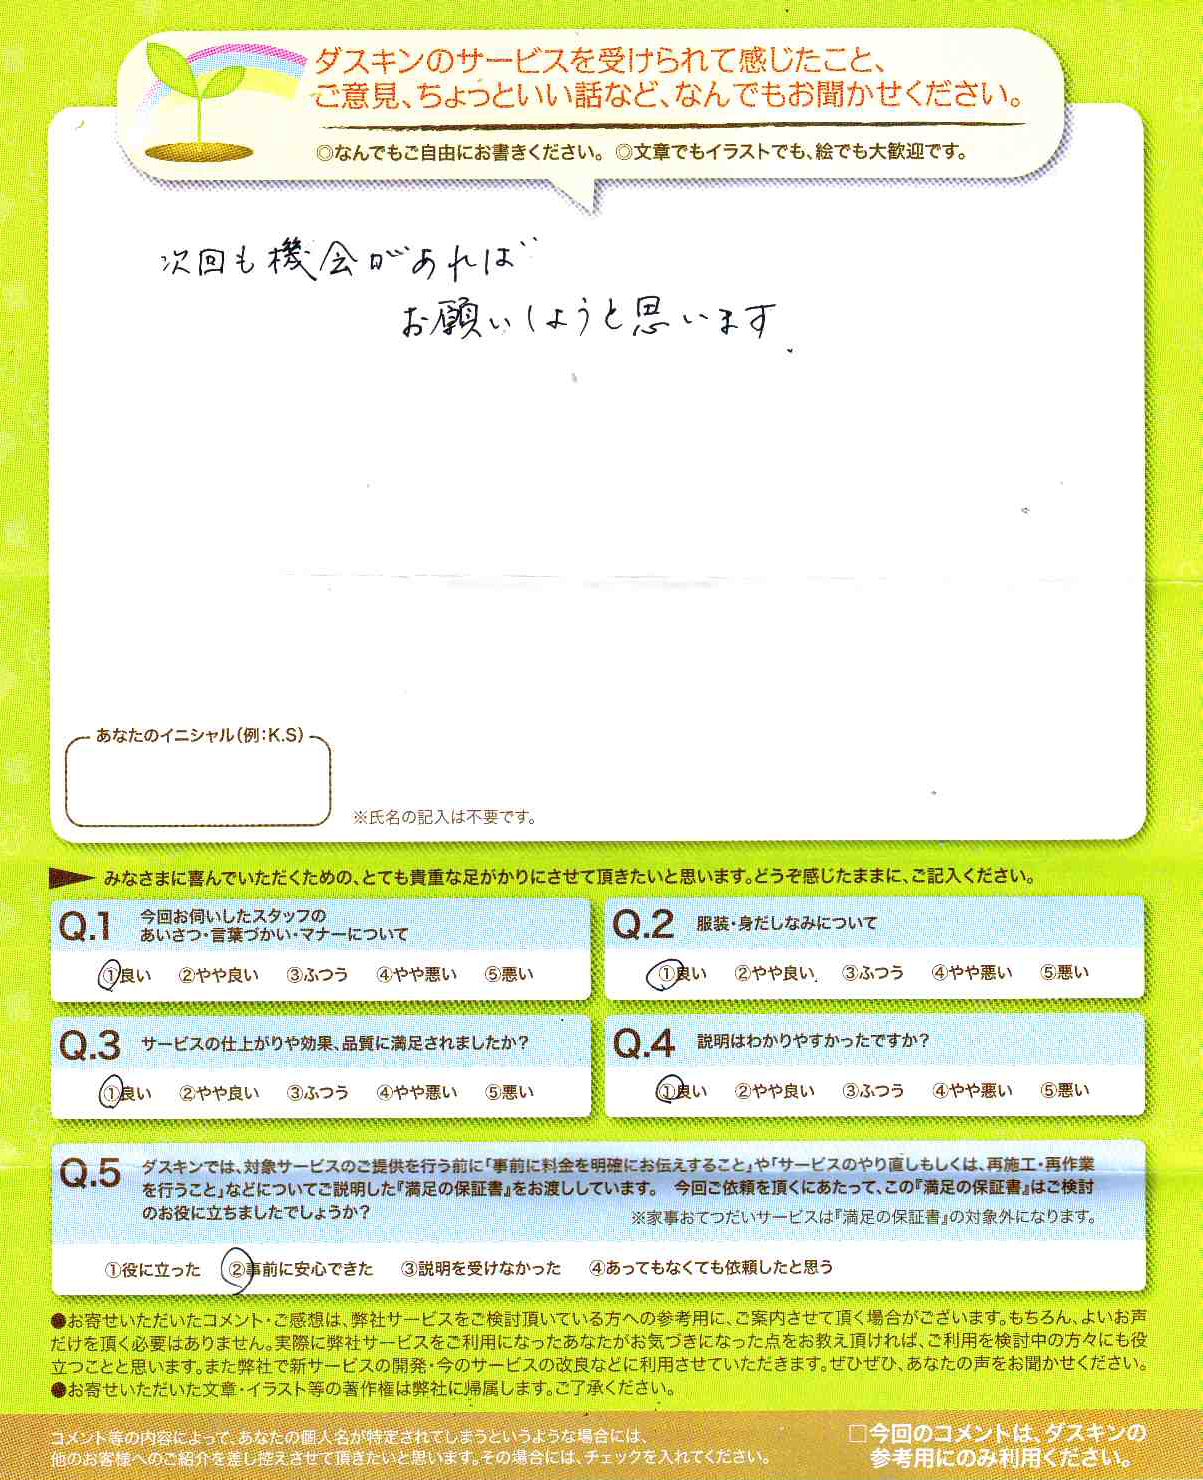 ダスキンのサービスを受けられて感じたこと、
ご意見、ちょっといい話など、なんでもお聞かせください。
◎なんでもご自由にお書きください。 ◎文章でもイラストでも、絵でも大歓迎です。
次回も機会があれば
お願いしようと思います.
あなたのイニシャル(例:K.S)
※氏名の記入は不要です。
みなさまに喜んでいただくための、とても貴重な足がかりにさせて頂きたいと思います。どうぞ感じたままに、ご記入ください。
Q.1 今回お伺いしたスタッフの
あいさつ・言葉づかい・マナーについて
①良い ②やや良い ③ふつう ④やや悪い ⑤悪い
Q.2 服装・身だしなみについて
①良い ②やや良い ③ふつう ④やや悪い ⑤悪い
Q.3 サービスの仕上がりや効果、品質に満足されましたか?
①良い ②やや良い ③ふつう ④やや悪い ⑤悪い
Q.4 説明はわかりやすかったですか?
①良い ②やや良い ③ふつう ④やや悪い ⑤悪い
Q.5 ダスキンでは、対象サービスのご提供を行う前に「事前に料金を明確にお伝えすること」や「サービスのやり直しもしくは、再施工・再作業
を行うこと」などについてご説明した『満足の保証書』をお渡ししています。 今回ご依頼を頂くにあたって、この『満足の保証書』はご検討
のお役に立ちましたでしょうか?
※家事おてつだいサービスは『満足の保証書』の対象外になります。
①役に立った ②事前に安心できた ③説明を受けなかった ④あってもなくても依頼したと思う
●お寄せいただいたコメント・ご感想は、弊社サービスをご検討頂いている方への参考用に、ご案内させて頂く場合がございます。もちろん、よいお声
だけを頂く必要はありません。実際に弊社サービスをご利用になったあなたがお気づきになった点をお教え頂ければ、ご利用を検討中の方々にも役
立つことと思います。また弊社で新サービスの開発・今のサービスの改良などに利用させていただきます。ぜひぜひ、あなたの声をお聞かせください。
●お寄せいただいた文章・イラスト等の著作権は弊社に帰属します。ご了承ください。
コメント等の内容によって、あなたの個人名が特定されてしまうというような場合には、
他のお客様へのご紹介を差し控えさせて頂きたいと思います。その場合には、チェックを入れてください。
□今回のコメントは、ダスキンの
参考用にのみ利用ください。